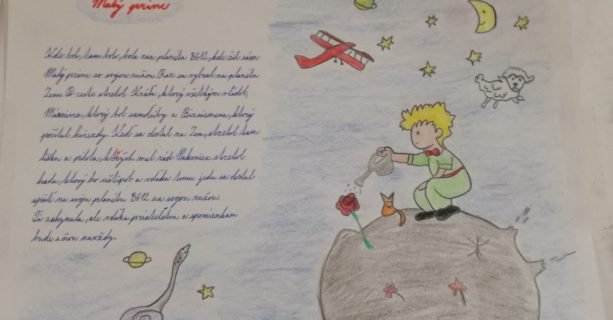 Malý princ
Kde bol, tam bol, bola raz planéta B612, kde žil sám
Malý princ so svojou ružou. Raz sa vybral na planétu
Zem. Po ceste stretol: Kráľa, ktorý všetkým vládol,
Márnivca, ktorý bol samoľúby a Biznismana, ktorý
počítal hviezdy. Keď sa dostal na Zem, stretol tam
líšku a pilota, ktorých mal rád. Nakoniec stretol
hada, ktorý ho uštipol a vďaka tomu jedu sa dostal
späť na svoju planétu B612 za svojou ružou.
Tá zahynula, ale vďaka priateľstvu a spomienkam
bude s ňou navždy.